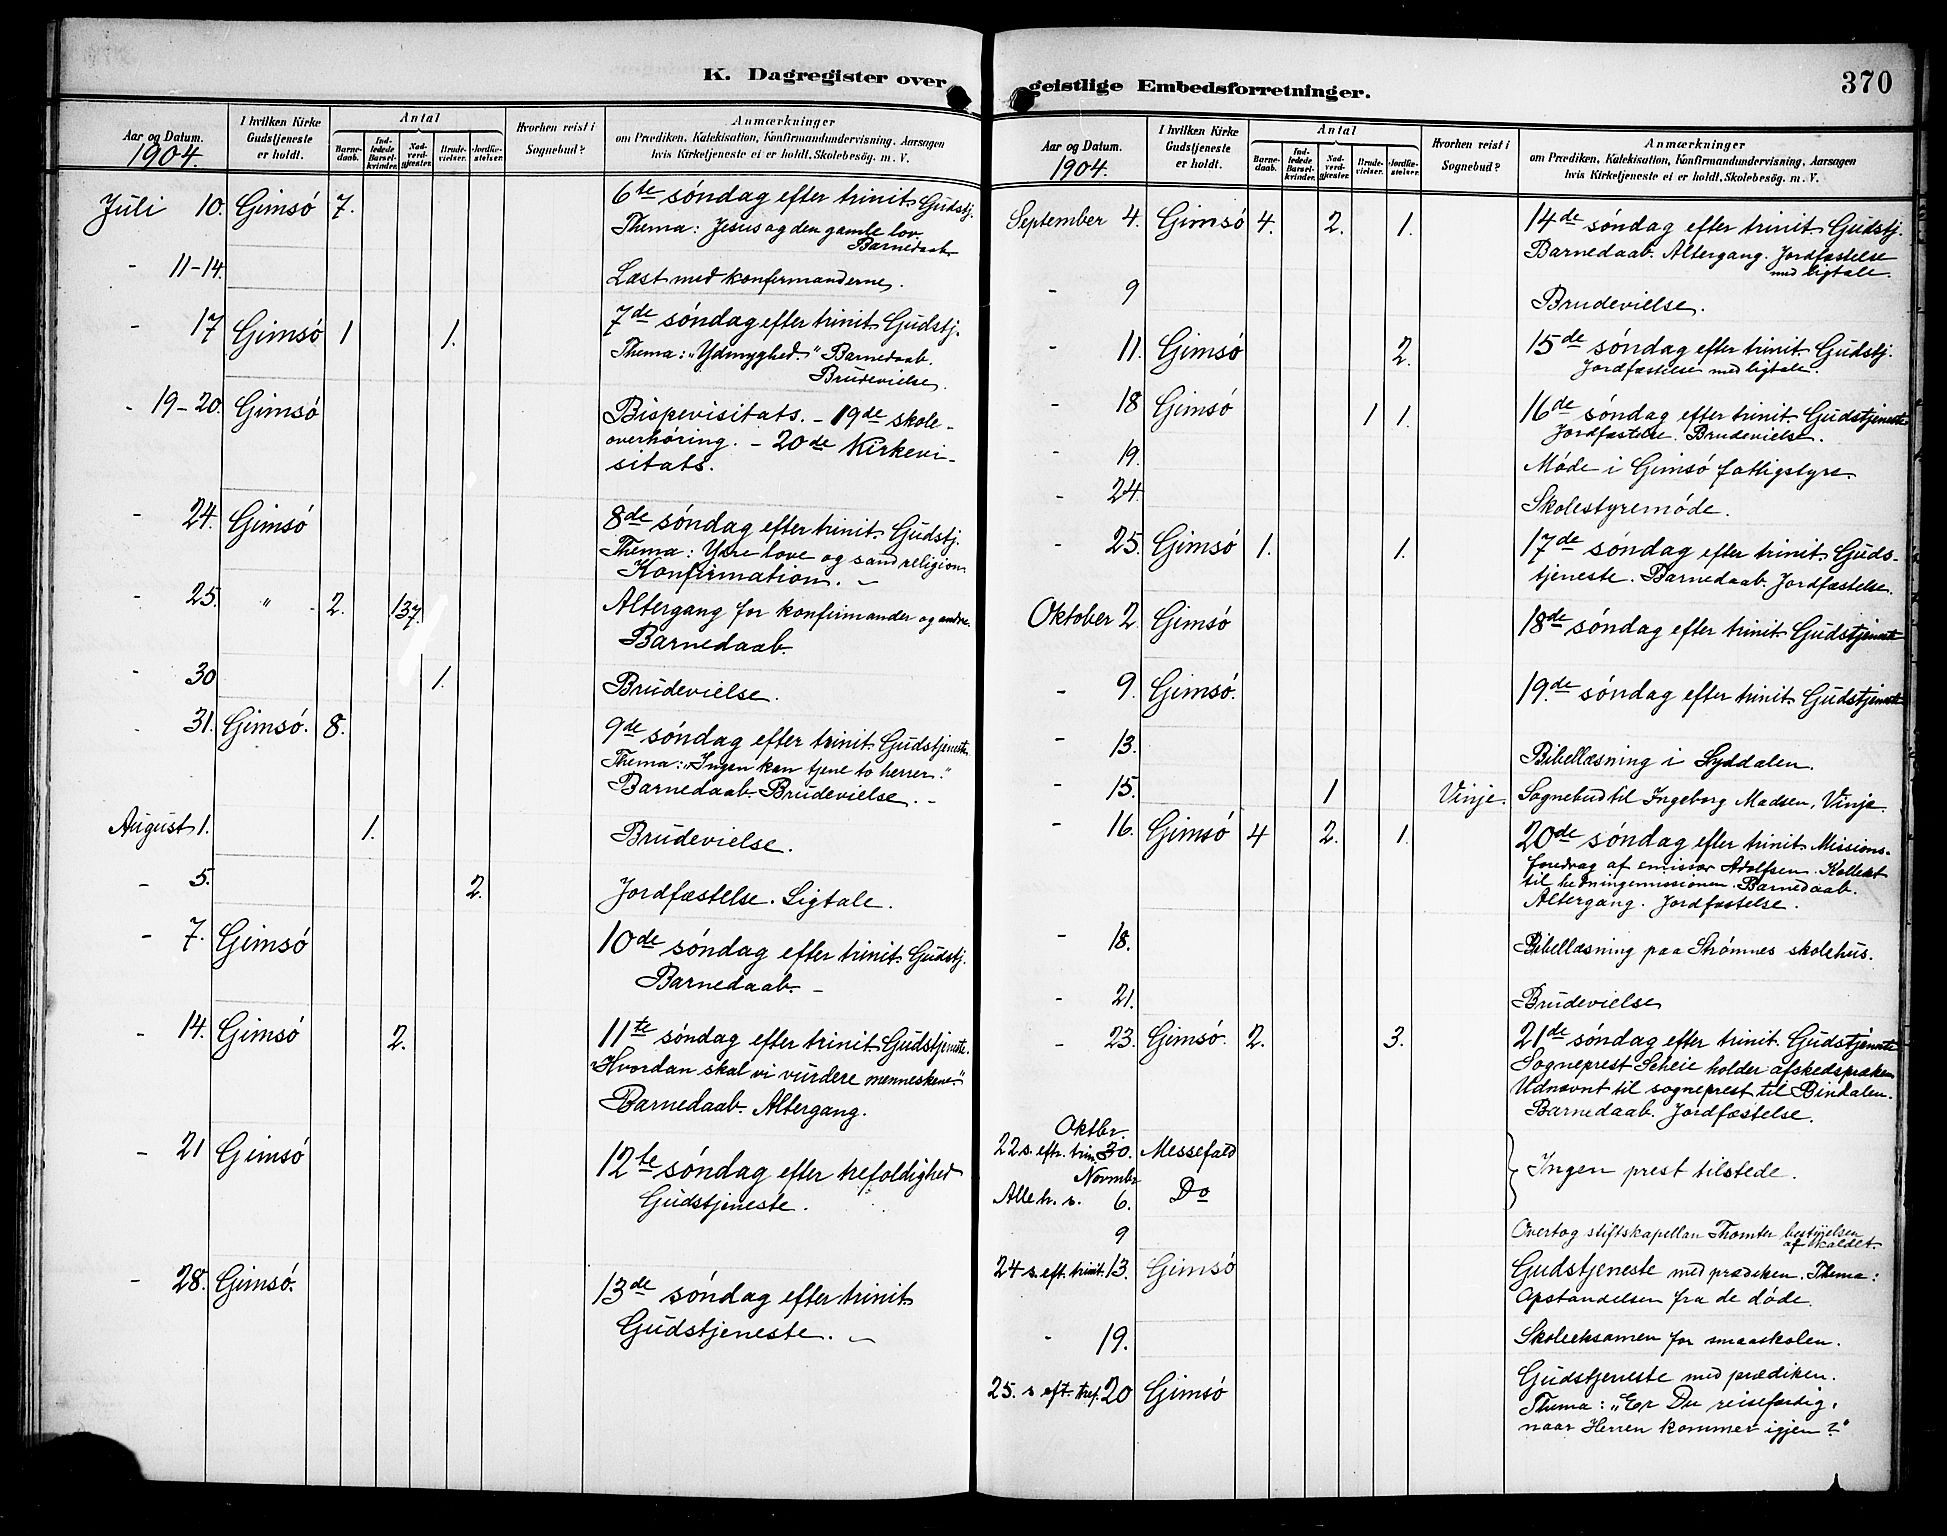 K. Dagregister over
Aar og Datum.
1904.
I hvilken Kirke Gudstjeneste er holdt.
Antal
Barnedaab.
Indledede Barselkvinder.
Nadverdgjester.
Brudevielser.
Jordfæstelser.
Hvorhen reist i Sognebud?
Anmærkninger
om Prædiken, Katekisation, Konfirmandundervisning, Aarsagen
hvis Kirketjeneste ei er holdt, Skolebesøg, m. V.
Juli 10. Gimsö 7. 6te söndag efter trinit. Gudstj.
Thema: Jesus og den gamle lov.
Barnedaab.
- 11-14. Læst med konfirmanderne.
- 17 Gimsö 1 1. 7de söndag efter trinit. Gudstj.
Thema: "Ydmyghed." Barnedaab.
Brudevielse.
- 19-20. Gimsö Bispevisitats. - 19de skole-
overhöring. - 20de Kirkevi-
sitats.
- 24. Gimsö 8de söndag efter trinit. Gudstj.
Thema: Ydre love og sand religion.
Konfirmation. -
- 25. " - 2. 137. Altergang for konfirmander og andre.
Barnedaab.
- 30 1. Brudevielse.
- 31. Gimsö. 8. 9de söndag efter trinit. Gudstjeneste.
Thema: "Ingen kan tjene to herrer."
Barnedaab. Brudevielse. -
August 1. 1. Brudevielse.
- 5. 2. Jordfæstelse. Ligtale.
- 7. Gimsö 10de söndag efter trinit. Gudstj.
Barnedaab. -
- 14. Gimsö 2. 11te söndag efter trinit. Gudstjeneste.
"Hvordan skal vi vurdere menneskene"
Barnedaab. Altergang.
- 21 Gimsö 12te söndag efter trefoldighed
Gudstjeneste.
- 28. Gimsö. 13de söndag efter trinit.
Gudstjeneste. -
geistlige Embedsforretninger.
370
Aar og Datum.
1904.
I hvilken Kirke Gudstjeneste er holdt.
Antal
Barnedaab.
Indledede Barselkvinder.
Nadverdgjester.
Brudevielser.
Jordfæstelser.
Hvorhen reist i Sognebud?
Anmærkninger
om Prædiken, Katekisation, Konfirmandundervisning, Aarsagen
hvis Kirketjeneste ei er holdt, Skolebesøg, m. V.
September 4. Gimsö 4. 2. 1. 14de söndag efter trinit. Gudstj.
Barnedaab. Altergang. Jordfæstelse
med ligtale.
- 9 Brudevielse.
- 11. Gimsö 2. 15de söndag efter trinit. Gudstj.
Jordfæstelse med ligtale.
- 18 Gimsö 1 1. 16de söndag efter trinit. Gudstjeneste
Jordfæstelse. Brudevielse.
- 19. Möde i Gimsö fattigstyre.
- 24. Skolestyremöde.
- 25. Gimsö 1. 1. 17de söndag efter trinit. Guds-
tjeneste. Barnedaab. Jordfæstelse.
Oktober 2. Gimsö 18de söndag efter trinit. Gudstjeneste
- 9. Gimsö. 19.de söndag efter trinit. Gudstjeneste
- 13. Bibellæsning i Lyddalen.
- 15. 1 Vinje. Sognebud til Ingeborg Madsen, Vinje.
- 16. Gimsö 4 2. 1. 20de söndag efter trinit. Missions-
foredrag af emissær Adolfsen. Kollekt
til hedningemissionen. Barnedaab.
Altergang. Jordfæstelse.
- 18. Bibellæsning paa Strömnes skolehus.
- 21. Brudevielse
- 23. Gimsö. 2. 3. 21de söndag efter trinit. Gudstjeneste
Sogneprest Scheie holder afskedspræken
Udnævnt til sogneprest til Bindalen.
Barnedaab. Jordfæstelse.
Oktbr.
22 s. eftr. trin. 30. Messefald
Ingen prest tilstede.
Novmbr
Alle h. s. 6. Do
9 Overtog stiftskapellan Thomter bestyrelsen
af kaldet.
24 s. eft. trinit. 13. Gimsö Gudstjeneste med prædiken. Thema:
Opstandelsen fra de döde.
- 19. Skoleeksamen for smaaskolen.
25. s. eft. tref. 20 Gimsö Gudstjeneste med prædiken.
Thema: "Er Du reisefærdig,
naar Herren kommer igjen?"